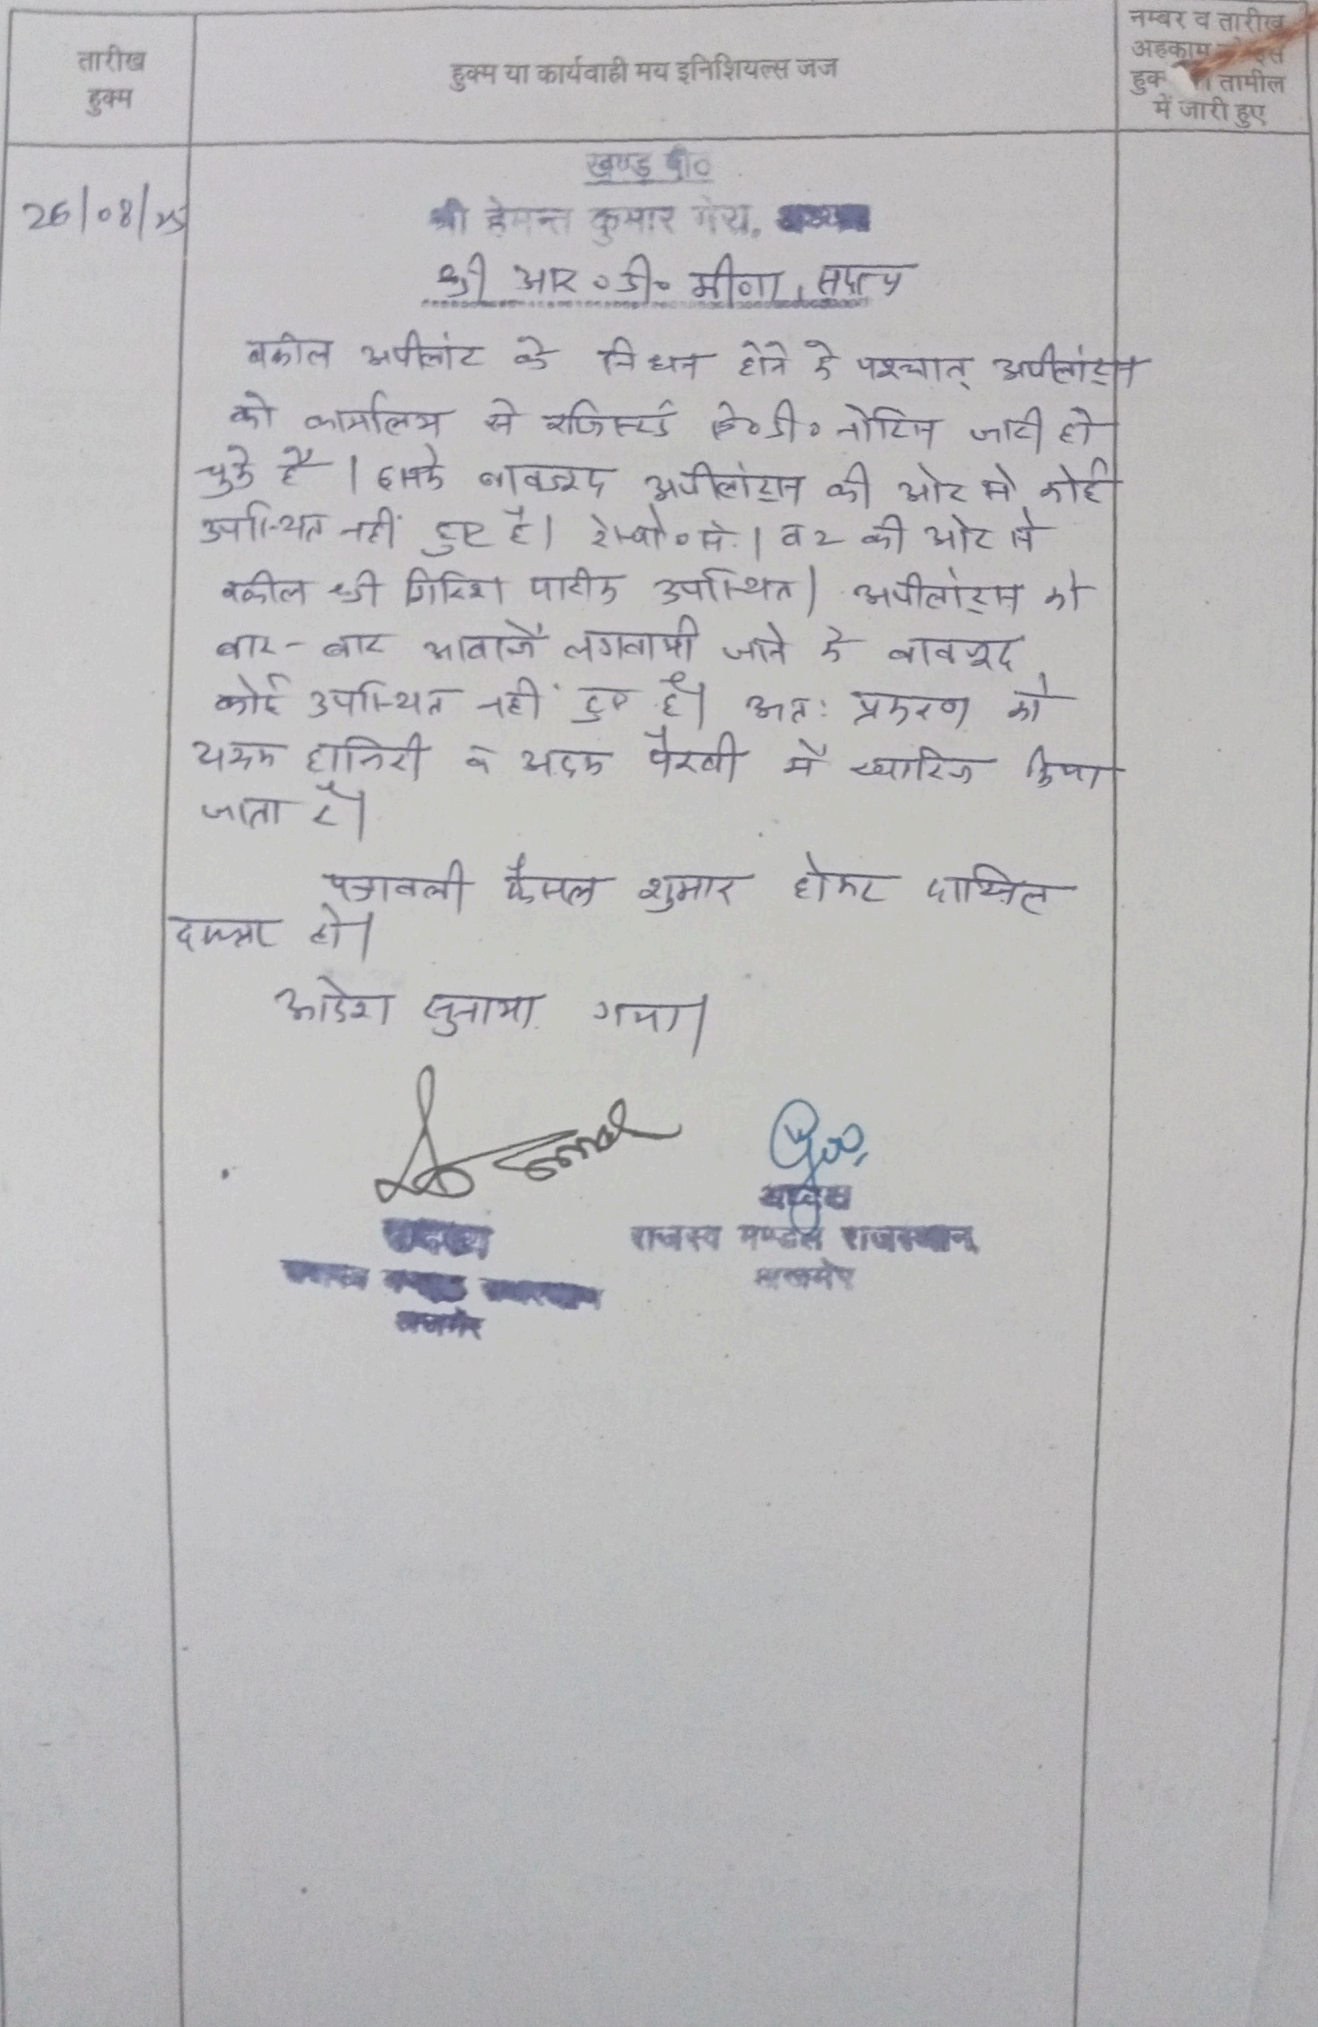 तारीख
हुक्म
हुक्म या कार्यवाही मय इनिशियल्स जज
नम्बर व तारीख
अहकाम
हुक तामील
में जारी हुए
26/08/25
खण्ड पी०
श्री हेमन्त कुमार गेरा,
श्री आर०डी० मीणा, सदस्य
वकील अपीलांट के निधन होने के पश्चात् अपीलांट्स
को कार्यालय से रजिस्टर्ड ए०डी० नोटिस जारी हो
चुके है। इसके बावजूद अपीलांट्स की ओर से कोई
उपस्थित नहीं हुए है। रेस्पो० सं. 1 व 2 की ओर से
वकील श्री गिरिश पारीक उपस्थित। अपीलांट्स को
बार-बार आवाजें लगवायी जाने के बावजूद
कोई उपस्थित नहीं हुए है। अतः प्रकरण को
अदम हाजिरी व अदम पैरवी में खारिज किया
जाता है।
पत्रावली फैसल शुमार होकर दाखिल
दफ्तर हो।
आदेश सुनाया गया।
सदस्य
सदस्य
राजस्व मण्डल राजस्थान
अजमेर
अजमेर